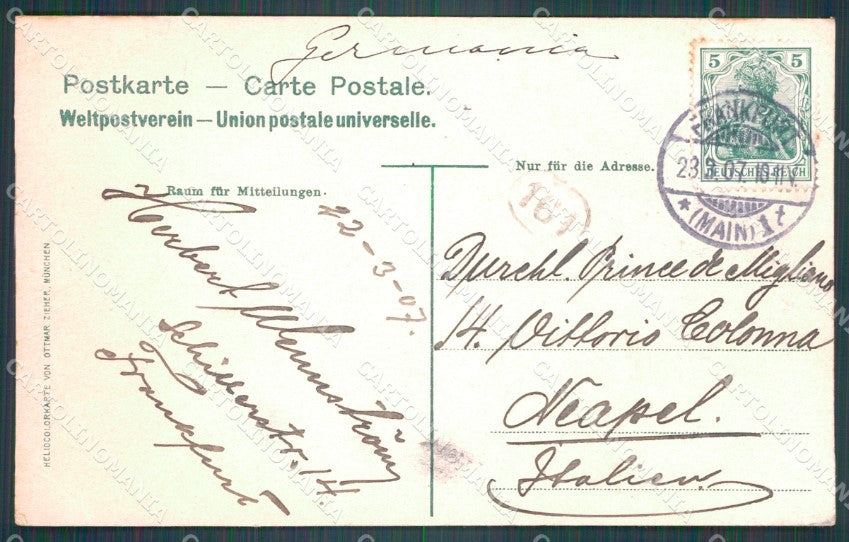 Germania
Postkarte — Carte Postale.
Weltpostverein — Union postale universelle.
5 5
DEUTSCHES REICH
FRANKFURT
23.3.07. 10-11 V.
* (MAIN) 1 t
Nur für die Adresse.
Raum für Mitteilungen.
161
22-3-07.
Herbert
Schillerstr. 14.
Frankfurt
Durchl. Prince de Migliano
14. Vittorio Colonna
Neapel.
Italien
HELIOCOLORKARTE VON OTTMAR ZIEHER, MÜNCHEN
CARTOLINOMANIA